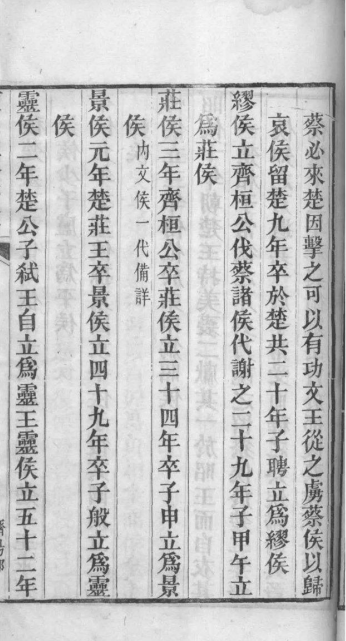 蔡必來楚因擊之可以有功文王從之虜蔡侯以歸
哀侯留楚九年卒於楚共二十年子聘立爲繆侯
繆侯立齊桓公伐蔡諸侯代謝之二十九年子甲午立
爲莊侯
莊侯三年齊桓公卒莊侯立三十四年卒子申立爲景
侯內文侯一代備詳
景侯元年楚莊王卒景侯立四十九年卒子般立爲靈
侯
靈侯二年楚公子弑王自立爲靈王靈侯立五十二年